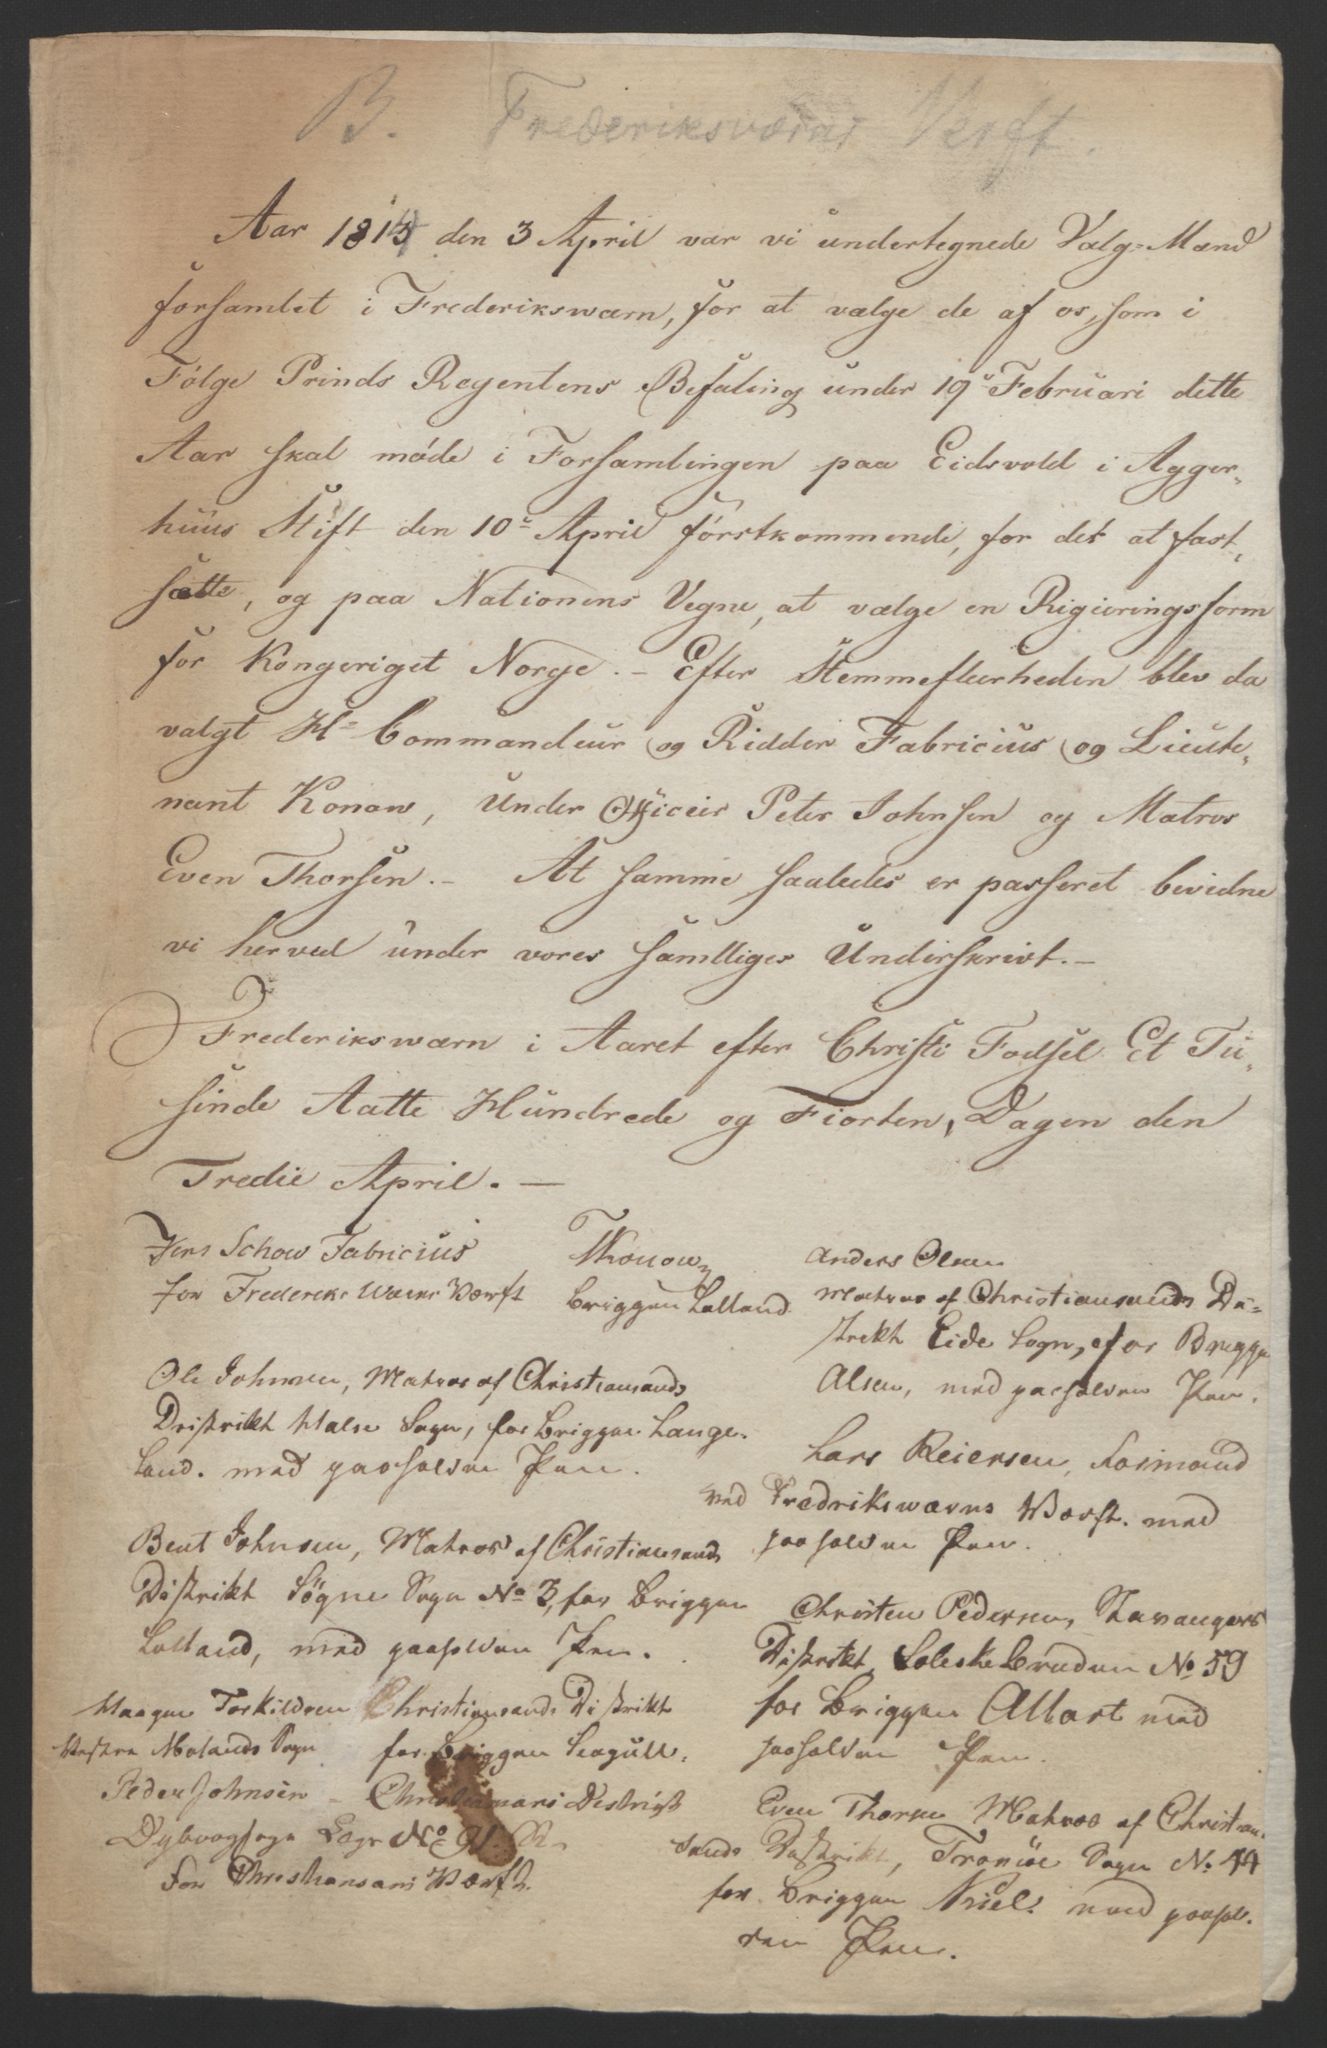 B. Frederiksværns Verft.
Aar 1814 den 3 April var vi undertegnede Valg=Mænd
forsamlet i Frederikswærn, for at vælge de af os, som i
Følge Prinds Regentens Befaling under 19de Februari dette
Aar skal møde i Forsamlingen paa Eidsvold i Agger„
huus Stift den 10de April førstkommende, for det at fast„
sætte, og paa Nationens Vegne, at vælge en Rigieringsform
for Kongeriget Norge. – Efter Stemmefleerheden blev da
valgt Hr Commandeur og Ridder Fabricius og Lieute„
nant Konow, Under Officeir Peter Johnsen og Matros
Even Thorsen. – At samme saaledes er passeret bevidne
vi herved under vores samtlige Underskrivt. –
Frederikswærn i Aaret efter Christi Fødsel Et Tu„
sinde Aatte Hundrede og Fiorten, Dagen den
Tredie April. —
Jens Schow Fabricius
for Fredericks Værns Værft
TKonow
Briggen Lolland
Anders Olsen
Matros af Christiansands Di=
strikt Eide Sogn, for Brigge
Alsen, med paaholden Pen.
Ole Johnsen, Matros af Christiansands
Distrikt Halse Sogn, for Briggen Lange.
land. med paaholden Pen.
Lars Reiersen, Formand
ved Fredrikswærns Værft. med
paaholden Pen.
Bent Johnsen, Matros af Christiansands
Distrikt Søgne Sogn No 3, for Briggen
Lolland, med paaholden Pen.
Christen Pedersen, Stavangers
Distrikt, No 59
for Briggen Allart med
paaholden Pen.
Haagen Torkildsen Christiansands Distrikt
Vestre Molands Sogn for Briggen Seagull.
Peder Johnsen – Christiansans Destrigt
Dybvogsogn No
for Christiansans Værft.
Even Thorsen Matros af Christian„
sands Distrikt, Tromøe Sogn No 44
for Briggen Kiel. med paahol.
den Pen.